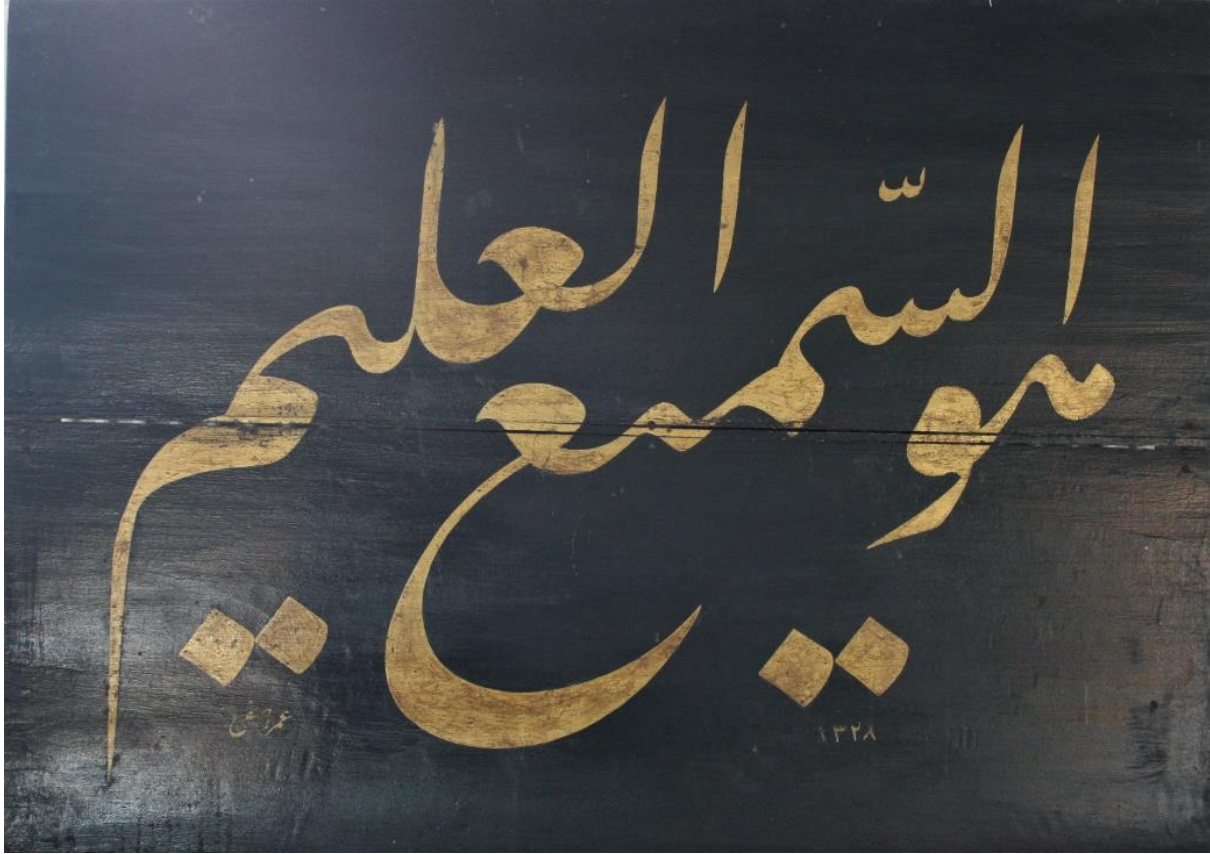 هو السّميع العليم
١٣٢٨
عمر وصفي